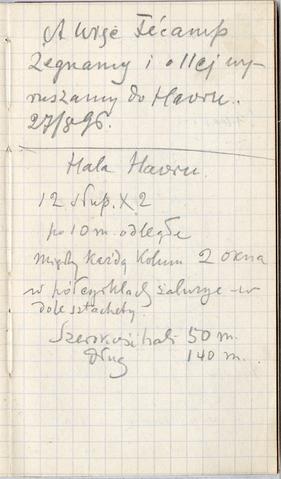 A więc Fécamp
żegnamy i o 11ej wy-
ruszamy do Havru.
27/8 96.
Hala Havru.
12 słup. X 2
po 10 m. odległe
między każdą kolum 2 okna
w półcyrklach żaluzye - w
dole sztachety.
Szerokość hali 50 m.
dług 140 m.